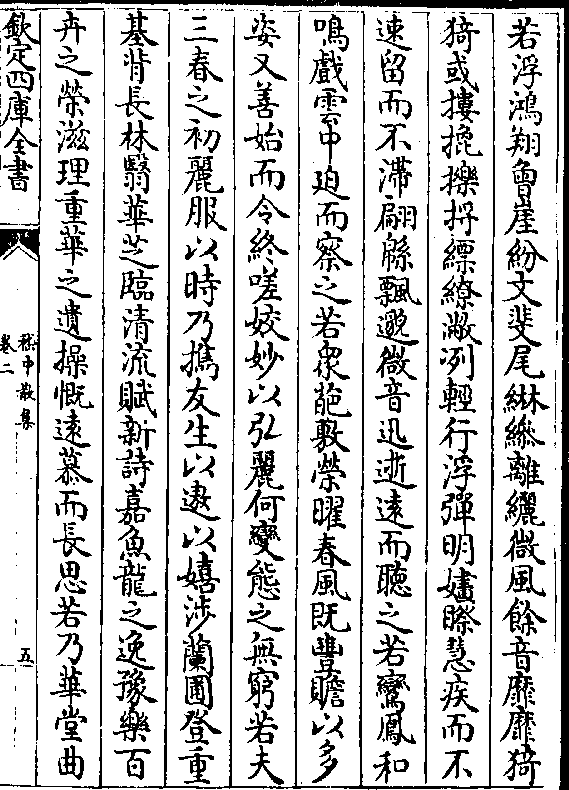 若浮鴻翔曾崖紛文斐尾綝縿離纚微風餘音靡靡猗
猗或摟㧢擽捋縹繚潎冽輕行浮彈明嫿䁟慧疾而不
速留而不滯翩緜飄邈微音迅逝遠而聽之若鸞鳳和
鳴戲雲中迫而察之若衆葩敷榮曜春風既豐贍以多
姿又善始而令終嗟姣妙以弘麗何變態之無窮若夫
三春之初麗服以時乃攜友生以遨以嬉涉蘭圃登重
基背長林翳華芝臨清流賦新詩嘉魚龍之逸豫樂百
卉之榮滋理重華之遺操慨遠慕而長思若乃華堂曲
欽定四庫全書
嵇中散集
卷二
五